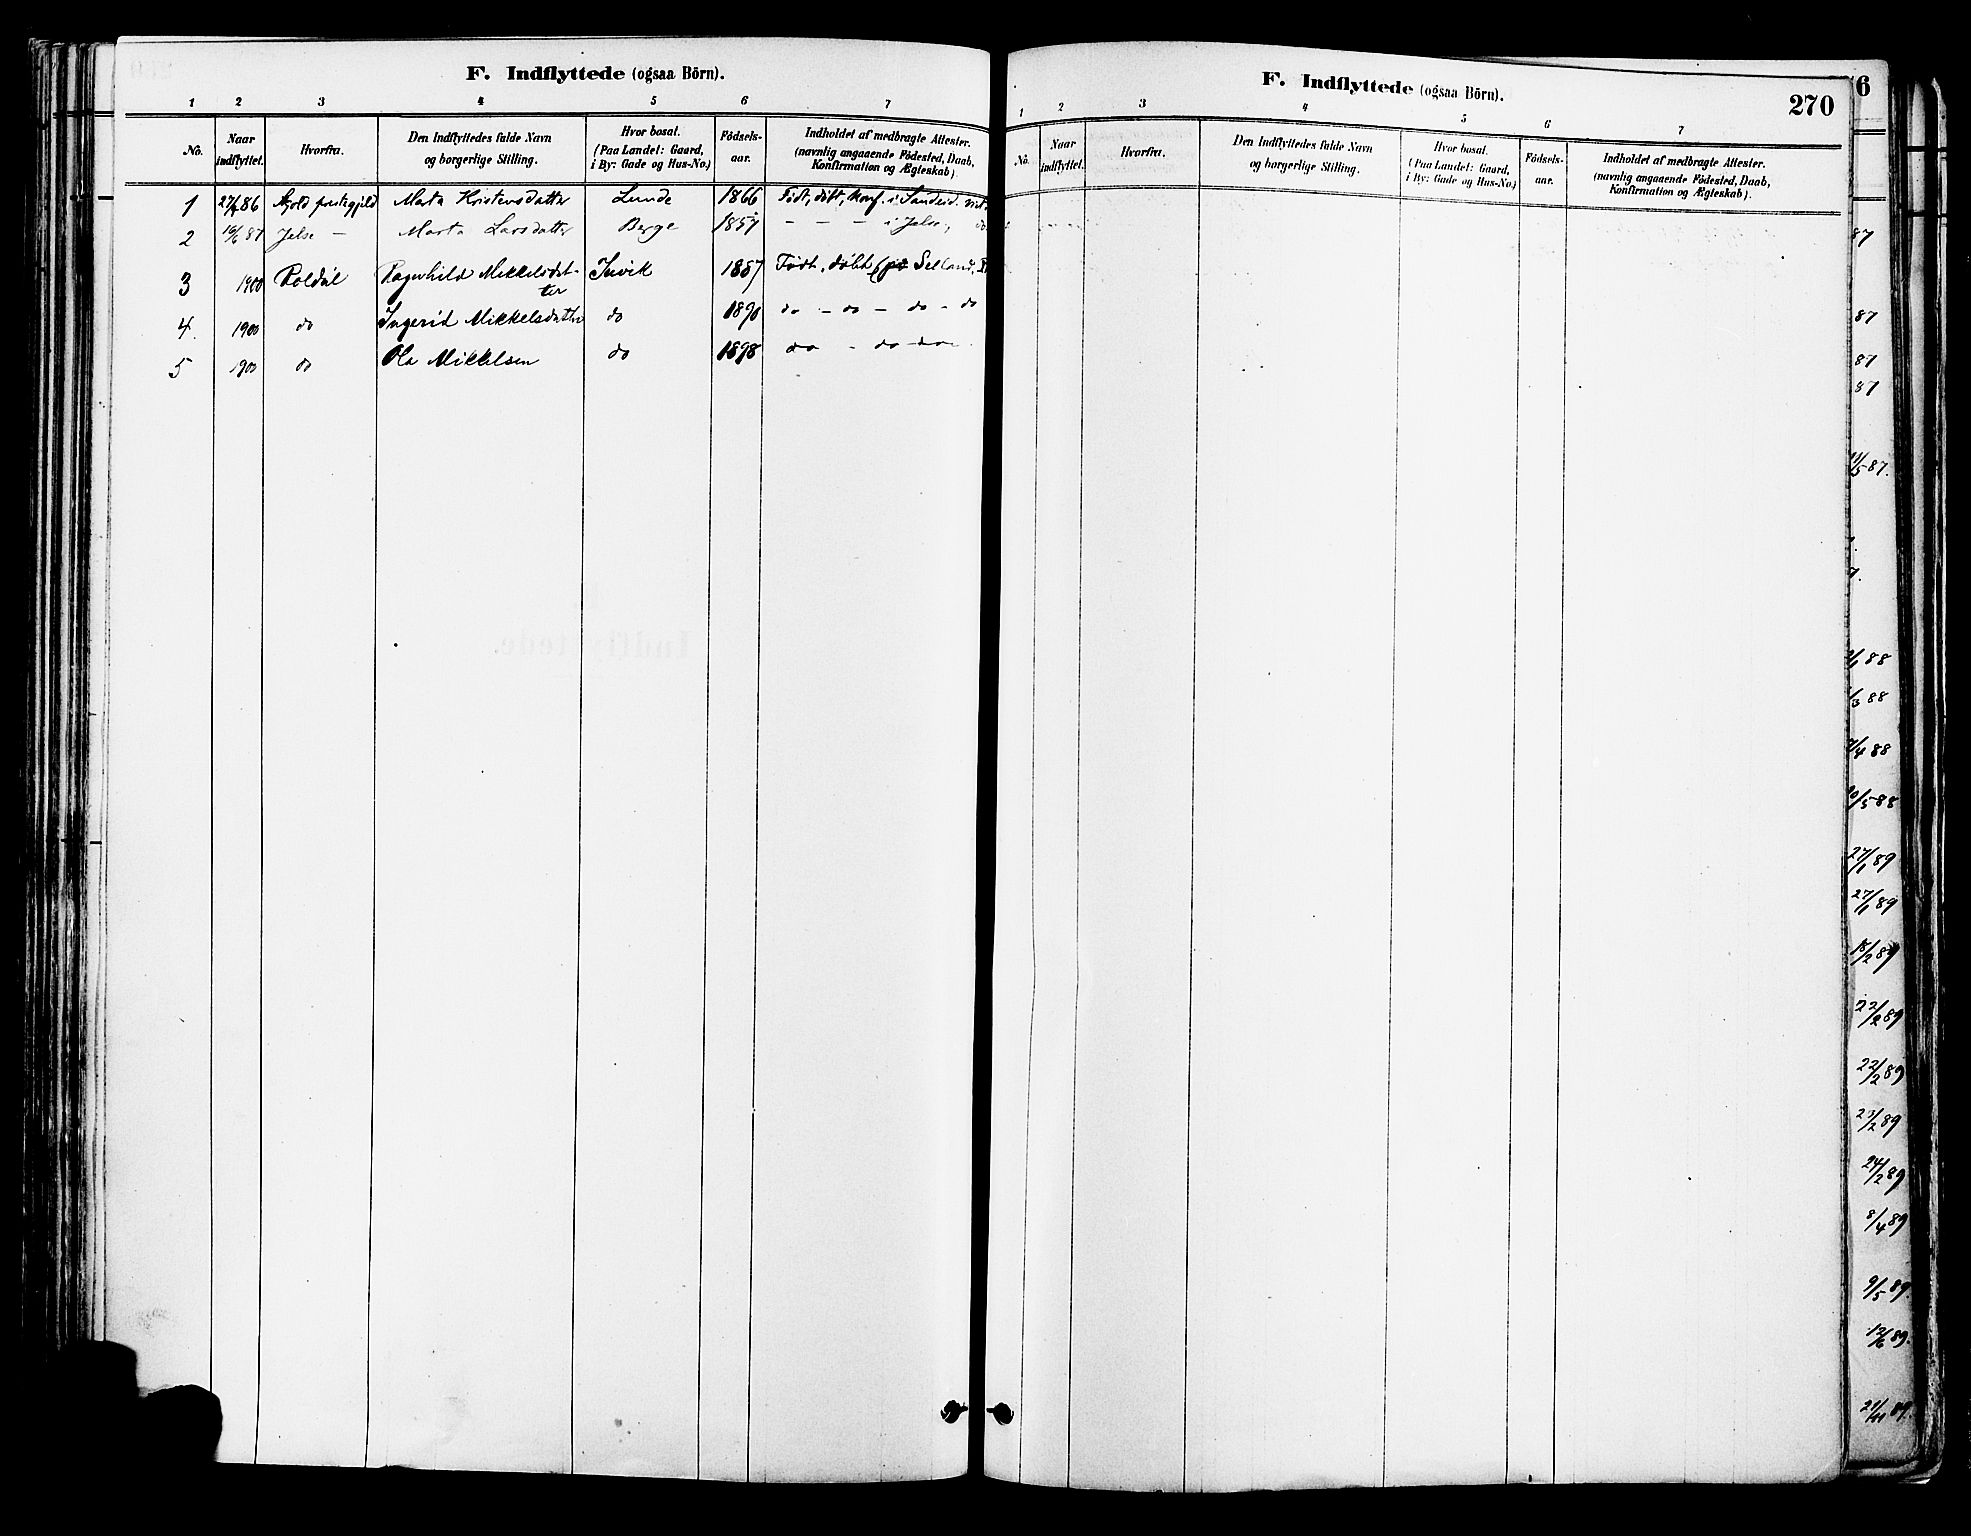 F. Indflyttede (ogsaa Börn).
1 2 3 4 5 6 7
No. Naar indflyttet. Hvorfra. Den Indflyttedes fulde Navn og borgerlige Stilling. Hvor bosat. (Paa Landet: Gaard, i By: Gade og Hus-No.) Födsels-aar. Indholdet af medbragte Attester. (navnlig angaaende Födested, Daab, Konfirmation og Ægteskab)
1 27/4 86 prestegjeld Marta Kristensdatter Lunde 1866 Født, døbt, konf. i Sandeid.
2 16/6 87 Jelse — Marta Larsdatter Berge 1857 — — — i Jelse,
3 1900 Roldal Ragnhild Mikkelsdat- Invik 1887 Født, døbt (på Selland,
ter
4. 1900 do Ingerid Mikkelsdatter do 1890 do — do — do — do
5 1900 do Ola Mikkelsen do 1898 do - do - do
F. Indflyttede (ogsaa Börn).
270
1 2 3 4 5 6 7
No. Naar indflyttet. Hvorfra. Den Indflyttedes fulde Navn og borgerlige Stilling. Hvor bosat. (Paa Landet: Gaard, i By: Gade og Hus-No.) Födsels-aar. Indholdet af medbragte Attester. (navnlig angaaende Födested, Daab, Konfirmation og Ægteskab).
6
87
87
87
87
11/5 87.
88
/3 88
/4 88
/5 88
27/1 89
27/1 89
18/2 89
22/2 89
22/2 89
23/2 89
24/2 89
8/4 89
9/5 89.
12/6 89.
21/11 89.